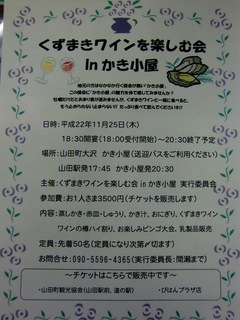 くずまきワインを楽しむ会
In かき小屋
日時:平成22年11月25日(木)
18:30開宴(18:00受付開始)~20:30終了予定
場所:山田町大沢 かき小屋(送迎バスをご利用ください。)
山田駅発17:45 かき小屋発20:30
主催:くずまきワインを楽しむ会 in かき小屋 実行委員会
参加費:お1人さま3500円(チケットを販売します)
内容:蒸しかき・赤皿・しゅうり、かき汁、おにぎり、くずまきワイン
ワインの樽ハイ割り、お楽しみビンゴ大会、乳製品販売
定員:先着50名(定員になり次第〆切ります)
お問合せ:090-5596-4365(実行委員長:間瀬まで)
~チケットはこちらで販売中です~
・山田町観光協会(山田駅前、道の駅) ・びはんプラザ店